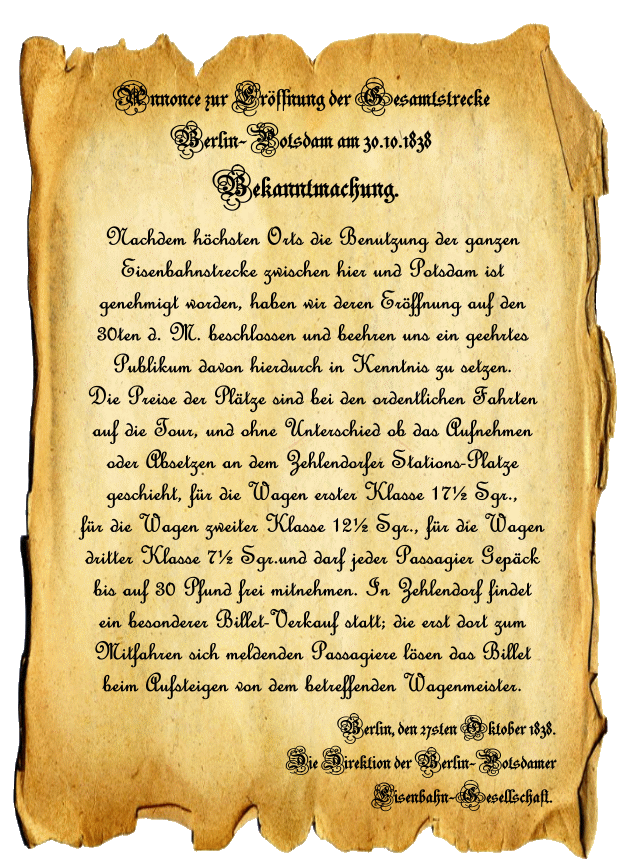 Annonce zur Eröffnung der Gesamtstrecke
Berlin- Potsdam am 30.10.1838
Bekanntmachung.
Nachdem höchsten Orts die Benutzung der ganzen
Eisenbahnstrecke zwischen hier und Potsdam ist
genehmigt worden, haben wir deren Eröffnung auf den
30ten d. M. beschlossen und beehren uns ein geehrtes
Publikum davon hierdurch in Kenntnis zu setzen.
Die Preise der Plätze sind bei den ordentlichen Fahrten
auf die Tour, und ohne Unterschied ob das Aufnehmen
oder Absetzen an dem Zehlendorfer Stations-Platze
geschieht, für die Wagen erster Klasse 17½ Sgr.,
für die Wagen zweiter Klasse 12½ Sgr., für die Wagen
dritter Klasse 7½ Sgr.und darf jeder Passagier Gepäck
bis auf 30 Pfund frei mitnehmen. In Zehlendorf findet
ein besonderer Billet-Verkauf statt; die erst dort zum
Mitfahren sich meldenden Passagiere lösen das Billet
beim Aufsteigen von dem betreffenden Wagenmeister.
Berlin, den 27sten Oktober 1838.
Die Direktion der Berlin- Potsdamer
Eisenbahn-Gesellschaft.